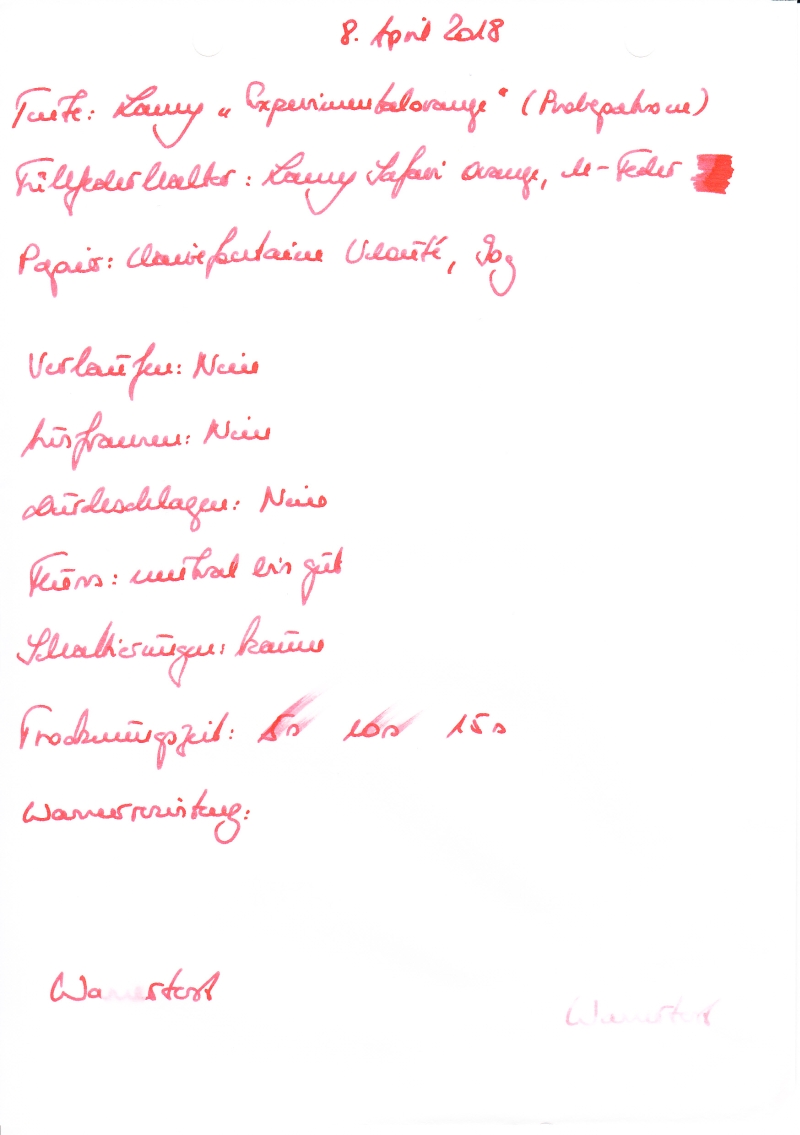 8. April 2018
Tinte: Lamy „Experimentalorange“ (Probepatrone)
Füllfederhalter: Lamy Safari orange, M-Feder
Papier: Clairefontaine Velouté, 90g
Verlaufen: Nein
Ausfransen: Nein
Durchschlagen: Nein
Fluss: neutral bis gut
Schattierungen: kaum
Trocknungszeit: 5s 10s 15s
Wasserresistenz:
Wassertest
Wassertest